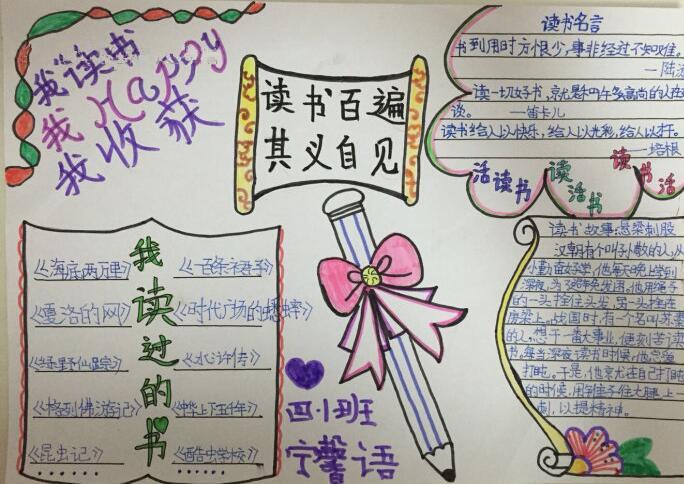 我读书
我Happy
我收获
读书百遍
其义自见
读书名言
书到用时方恨少,事非经过不知难。
—陆游
读一切好书,就是和许多高尚的人在
谈。 —笛卡儿
读书给人以快乐,给人以光彩,给人以才干。
—培根
活读书
读活书
读书活
我读过的书
《海底两万里》
《一百条裙子》
《夏洛的网》
《时代广场的蟋蟀》
《绿野仙踪》
《水浒传》
《格列佛游记》
《中华上下五千年》
《昆虫记》
《酷虫学校》
……
……
四小班
宁馨语
读书故事:悬梁刺股
汉朝有个叫孙敬的人,从
小勤奋好学,他每天晚上学到
深夜,为了避免发困,他用绳子
的一头拴住头发,另一头拴在
房梁上。战国时,有个名叫苏秦
的人,想干一番大事业,便刻苦读
书,每当深夜读书时候,他总爱
打盹。于是,他就在自己打盹
的时候,用锥子往大腿上一
刺,以提精神。